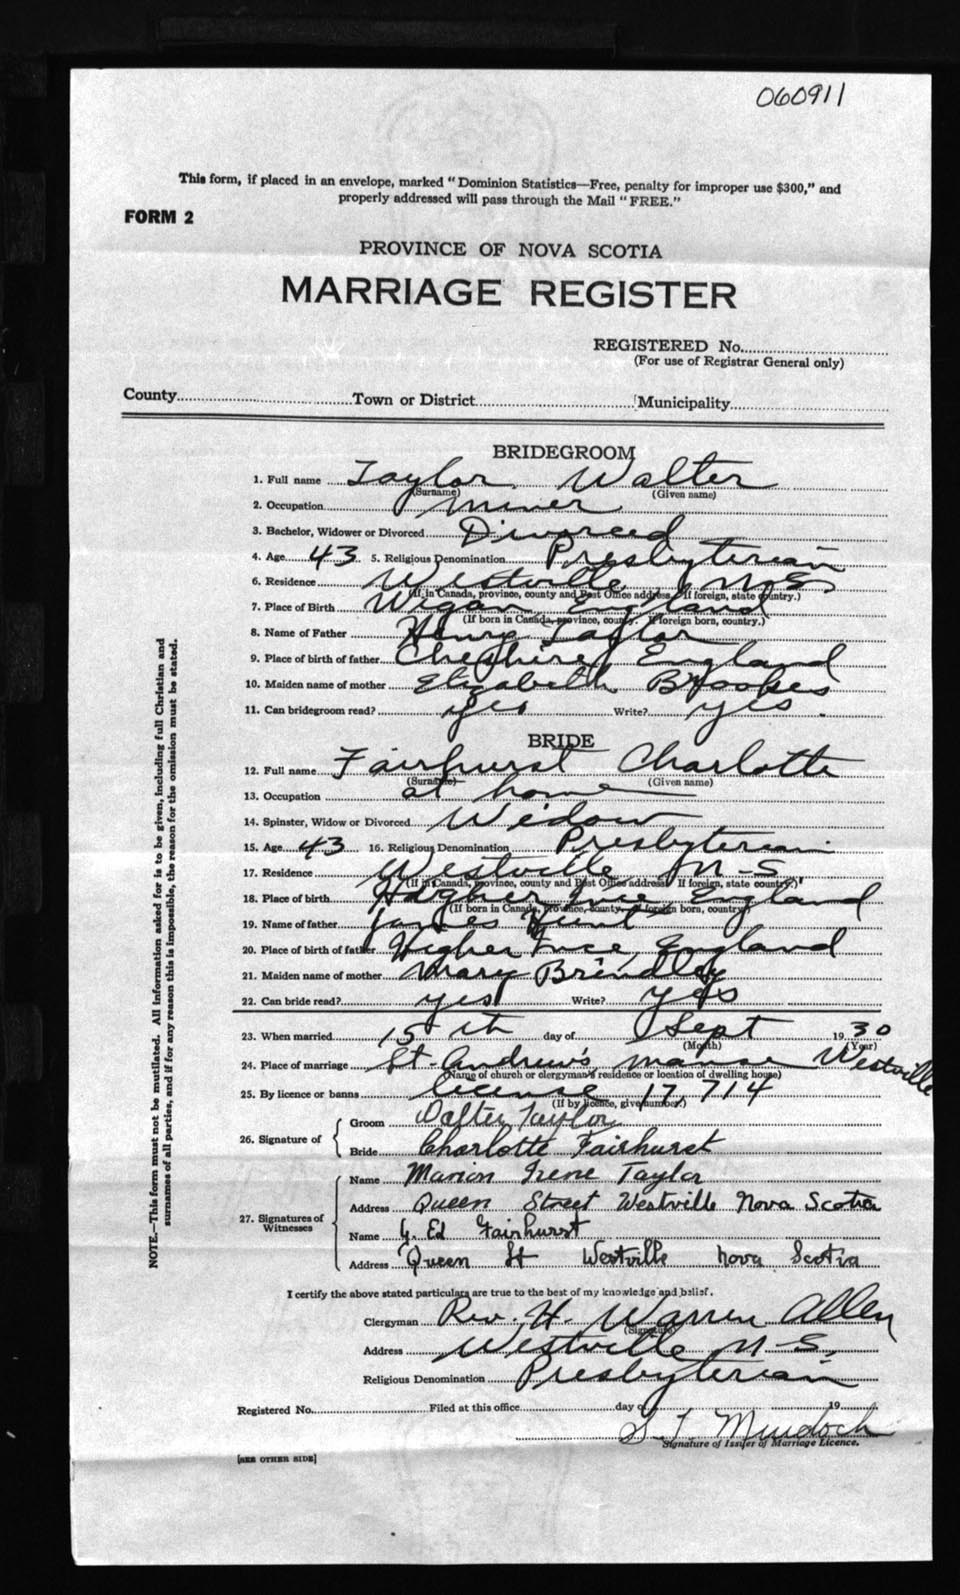 060911
This form, if placed in an envelope, marked "Dominion Statistics—Free, penalty for improper use $300," and
properly addressed will pass through the Mail "FREE."
FORM 2
PROVINCE OF NOVA SCOTIA
MARRIAGE REGISTER
REGISTERED No.
(For use of Registrar General only)
County Town or District Municipality
BRIDEGROOM
1. Full name Taylor Walter
(Surname) (Given name)
2. Occupation Miner
3. Bachelor, Widower or Divorced Divorced
4. Age 43 5. Religious Denomination Presbyterian
6. Residence Westville N.S.
(If in Canada, province, county and Post Office address. If foreign, state country.)
7. Place of Birth Wigan England
(If born in Canada, province, county. If foreign born, country.)
8. Name of Father Henry Taylor
9. Place of birth of father Cheshire, England
10. Maiden name of mother Elizabeth Brookes
11. Can bridegroom read? yes Write? yes.
BRIDE
12. Full name Fairhurst Charlotte
(Surname) (Given name)
13. Occupation at home
14. Spinster, Widow or Divorced Widow
15. Age 43 16. Religious Denomination Presbyterian
17. Residence Westville N-S
(If in Canada, province, county and Post Office address. If foreign, state country.)
18. Place of birth Higher Ince, England
(If born in Canada, province, county, if foreign born, country)
19. Name of father James Hunt
20. Place of birth of father Higher Ince England
21. Maiden name of mother Mary Brindley
22. Can bride read? yes Write? yes
23. When married 15th day of Sept 1930
(Month) (Year)
24. Place of marriage St-Andrew's manse Westville
(Name of church or clergyman's residence or location of dwelling house)
25. By licence or banns license 17,714
(If by licence, give number.)
26. Signature of
Groom Walter Taylor
Bride Charlotte Fairhurst
27. Signatures of Witnesses
Name Marion Irene Taylor
Address Queen Street Westville Nova Scotia
Name Ed Fairhurst
Address Queen St Westville Nova Scotia
I certify the above stated particulars are true to the best of my knowledge and belief.
Clergyman Rev. H. Warren Allen
(Signature)
Address Westville N-S.
Religious Denomination Presbyterian
Registered No. Filed at this office day of 19
S T Murdoch
Signature of Issuer of Marriage Licence.
[SEE OTHER SIDE]
NOTE.—This form must not be mutilated. All information asked for is to be given, including full Christian and
surnames of all parties, and if for any reason this is impossible, the reason for the omission must be stated.